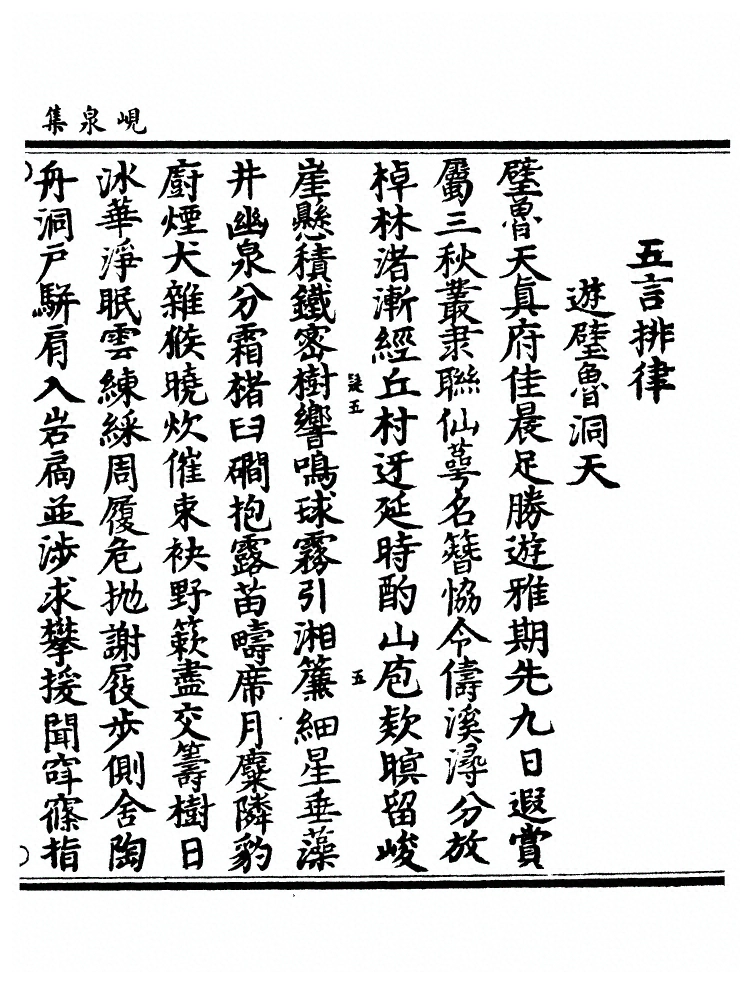 峴泉集
五言排律
遊壁魯洞天
壁魯天真府佳晨足勝遊雅期先九日遐賞
屬三秋叢隶聯仙萼名簪恊令儔溪潯分放
棹林渚漸經丘村迓延時酌山庖欵暝留峻
疑五
五
崖懸積鐵密樹響鳴球霧引湘簾細星垂藻
井幽泉分霜楮臼磵抱露苗疇席月麋隣豹
廚煙犬雜猴曉炊催束袂野簌盡交籌樹日
冰華淨眠雲練綵周履危抛謝屐步側舍陶
舟洞戶駢肩入岩扃並涉求攀援聞窂窱指